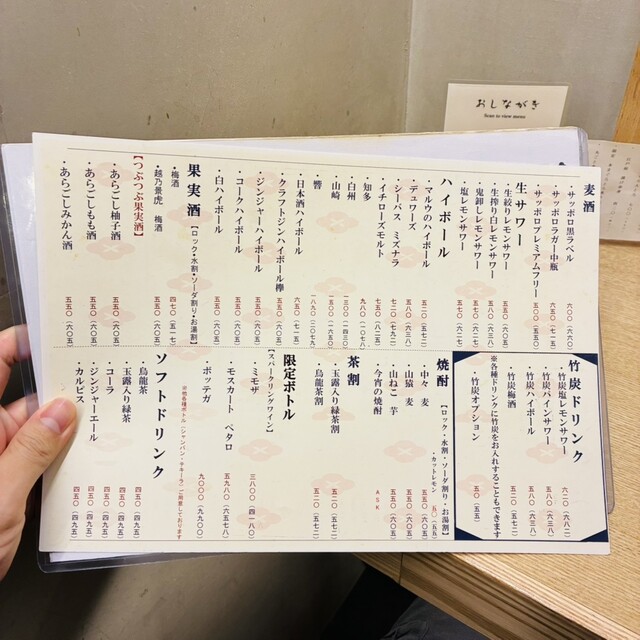 おしながき
Scan to view menu
麦酒
・サッポロ黒ラベル 六〇〇（六六〇）
・サッポロラガー中瓶 六五〇（七一五）
・サッポロプレミアムフリー 五〇〇（五五〇）
生サワー
・生絞りレモンサワー 五五〇（六〇五）
・生搾りレモンサワー
・鬼卸しレモンサワー
・塩レモンサワー 五六〇（六一六）
ハイボール
・マルウのハイボール 五二〇（五七二）
・デュワーズ 五八〇（六三八）
・シーバス ミズナラ 七二〇（七九二）
・イチローズモルト 九八〇（一〇七八）
・知多
・白州 一三〇〇（一四三〇）
・山崎 一五〇〇（一六五〇）
・響 一八九〇（二〇七九）
・日本酒ハイボール 六五〇（七一五）
・クラフトジンハイボール欅 五五〇（六〇五）
・ジンジャーハイボール 五五〇（六〇五）
・コークハイボール 五五〇（六〇五）
・白ハイボール 五五〇（六〇五）
果実酒
【ロック・水割・ソーダ割り・お湯割】
・梅酒 四七〇（五一七）
・越乃景虎 梅酒 五五〇（六〇五）
【つぶつぶ果実酒】
・あらごし柚子酒 五五〇（六〇五）
・あらごしもも酒 五五〇（六〇五）
・あらごしみかん酒 五五〇（六〇五）
竹炭ドリンク
・竹炭塩レモンサワー 六二〇（六八二）
・竹炭パインサワー 五八〇（六三八）
・竹炭ハイボール 五八〇（六三八）
・竹炭梅酒 五二〇（五七二）
※各種ドリンクに竹炭をお入れすることもできます
・竹炭オプション 五〇（五五）
焼酎
【ロック・水割・ソーダ割り・お湯割】
・カットレモン 五〇（五五）
・中々 麦 五五〇（六〇五）
・山猿 麦 五五〇（六〇五）
・山ねこ 芋 五五〇（六〇五）
・今宵の焼酎 ASK
茶割
・玉露入り緑茶割 五二〇（五七二）
・烏龍茶割 五二〇（五七二）
限定ボトル
【スパークリングワイン】
・ミモザ 三八〇〇（四一八〇）
・モスカート ペタロ 五九八〇（六五七八）
・ボッテガ 九〇〇〇（九九〇〇）
※他各種ボトル（シャンパン・テキーラ）ご用意しております
ソフトドリンク
・烏龍茶 四五〇（四九五）
・玉露入り緑茶 四五〇（四九五）
・コーラ 四五〇（四九五）
・ジンジャーエール 四五〇（四九五）
・カルピス 四五〇（四九五）